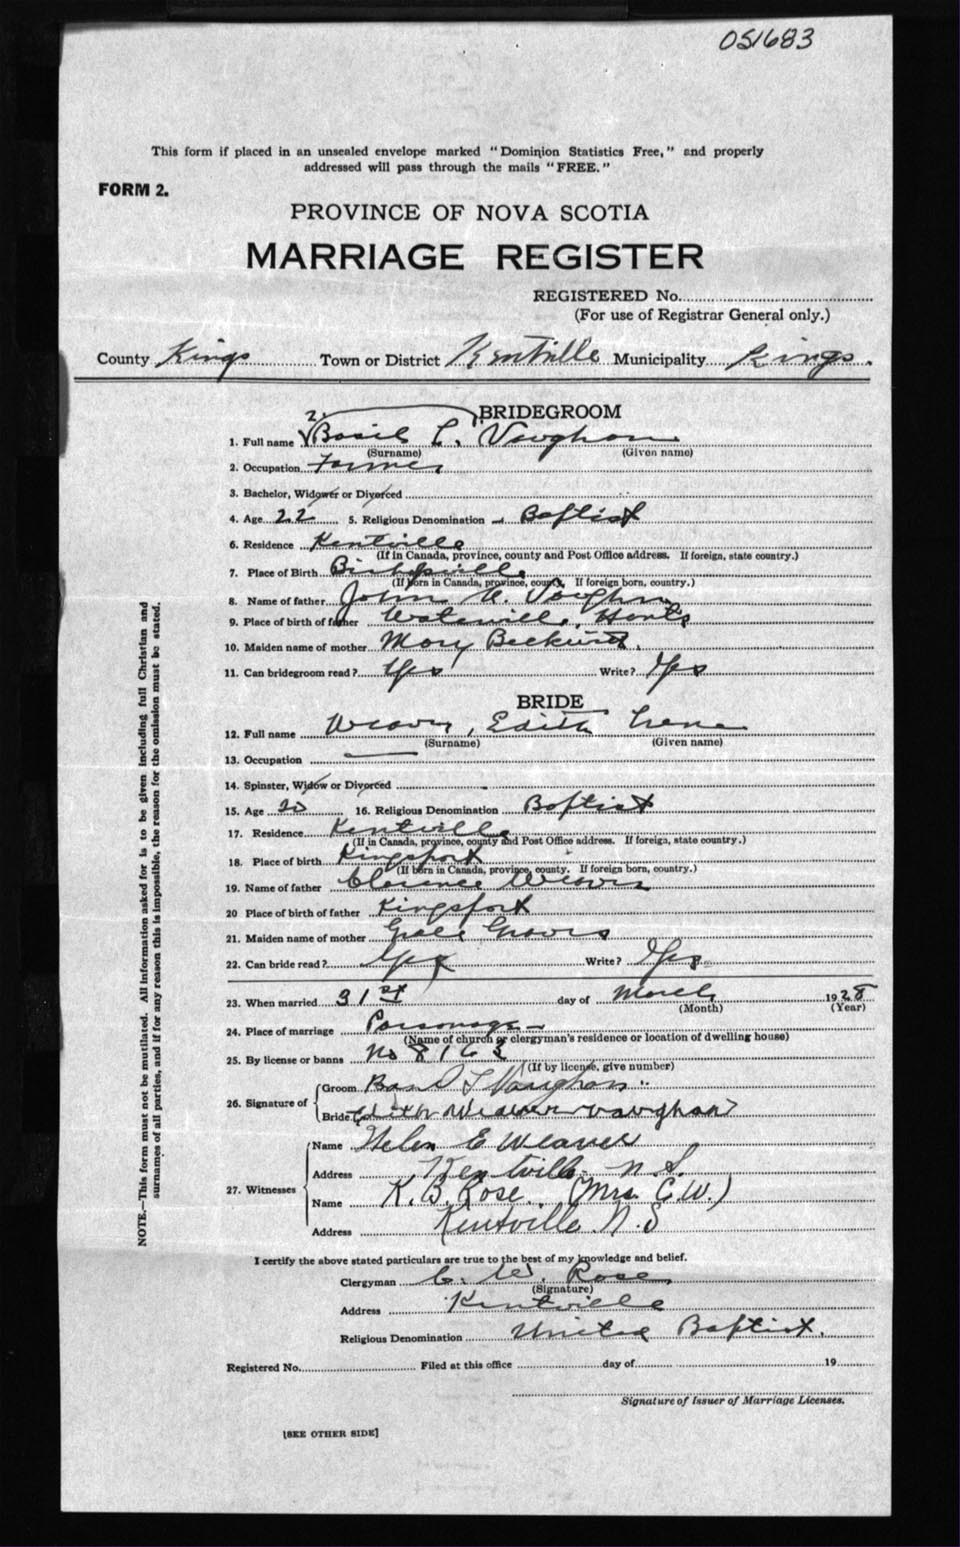 051683
This form if placed in an unsealed envelope marked "Dominion Statistics Free," and properly
addressed will pass through the mails "FREE."
FORM 2.
PROVINCE OF NOVA SCOTIA
MARRIAGE REGISTER
REGISTERED No.
(For use of Registrar General only.)
County Kings Town or District Kentville Municipality Kings.
2. BRIDEGROOM
1. Full name Basil L. Vaughan
(Surname) (Given name)
2. Occupation Farmer
3. Bachelor, Widower or Divorced
4. Age 22 5. Religious Denomination Baptist
6. Residence Kentville
(If in Canada, province, county and Post Office address. If foreign, state country.)
7. Place of Birth
(If born in Canada, province, county. If foreign born, country.)
8. Name of father John W. Vaughn
9. Place of birth of father Waterville, Hants
10. Maiden name of mother Mary
11. Can bridegroom read? Yes Write? Yes
BRIDE
12. Full name Weaver, Edith Irene
(Surname) (Given name)
13. Occupation
14. Spinster, Widow or Divorced
15. Age 20 16. Religious Denomination Baptist
17. Residence Kentville
(If in Canada, province, county and Post Office address. If foreign, state country.)
18. Place of birth Kingsport
(If born in Canada, province, county. If foreign born, country.)
19. Name of father Clarence Weaver
20 Place of birth of father Kingsport
21. Maiden name of mother Grace Graves
22. Can bride read? Yes Write? Yes
23. When married 31st day of March 1928
(Month) (Year)
24. Place of marriage Parsonage
(Name of church or clergyman's residence or location of dwelling house)
25. By license or banns No 8163
(If by license, give number)
26. Signature of Groom Basil L Vaughan
Bride Edith Weaver Vaughan
27. Witnesses Name Helen E Weaver
Address Kentville N.S.
Name K. B. Rose (Mrs. C.W.)
Address Kentville N.S
I certify the above stated particulars are true to the best of my knowledge and belief.
Clergyman C. W. Rose
(Signature)
Address Kentville
Religious Denomination United Baptist.
Registered No. Filed at this office day of 19
Signature of Issuer of Marriage Licenses.
[SEE OTHER SIDE]
NOTE.—This form must not be mutilated. All information asked for is to be given including full Christian and
surnames of all parties, and if for any reason this is impossible, the reason for the omission must be stated.